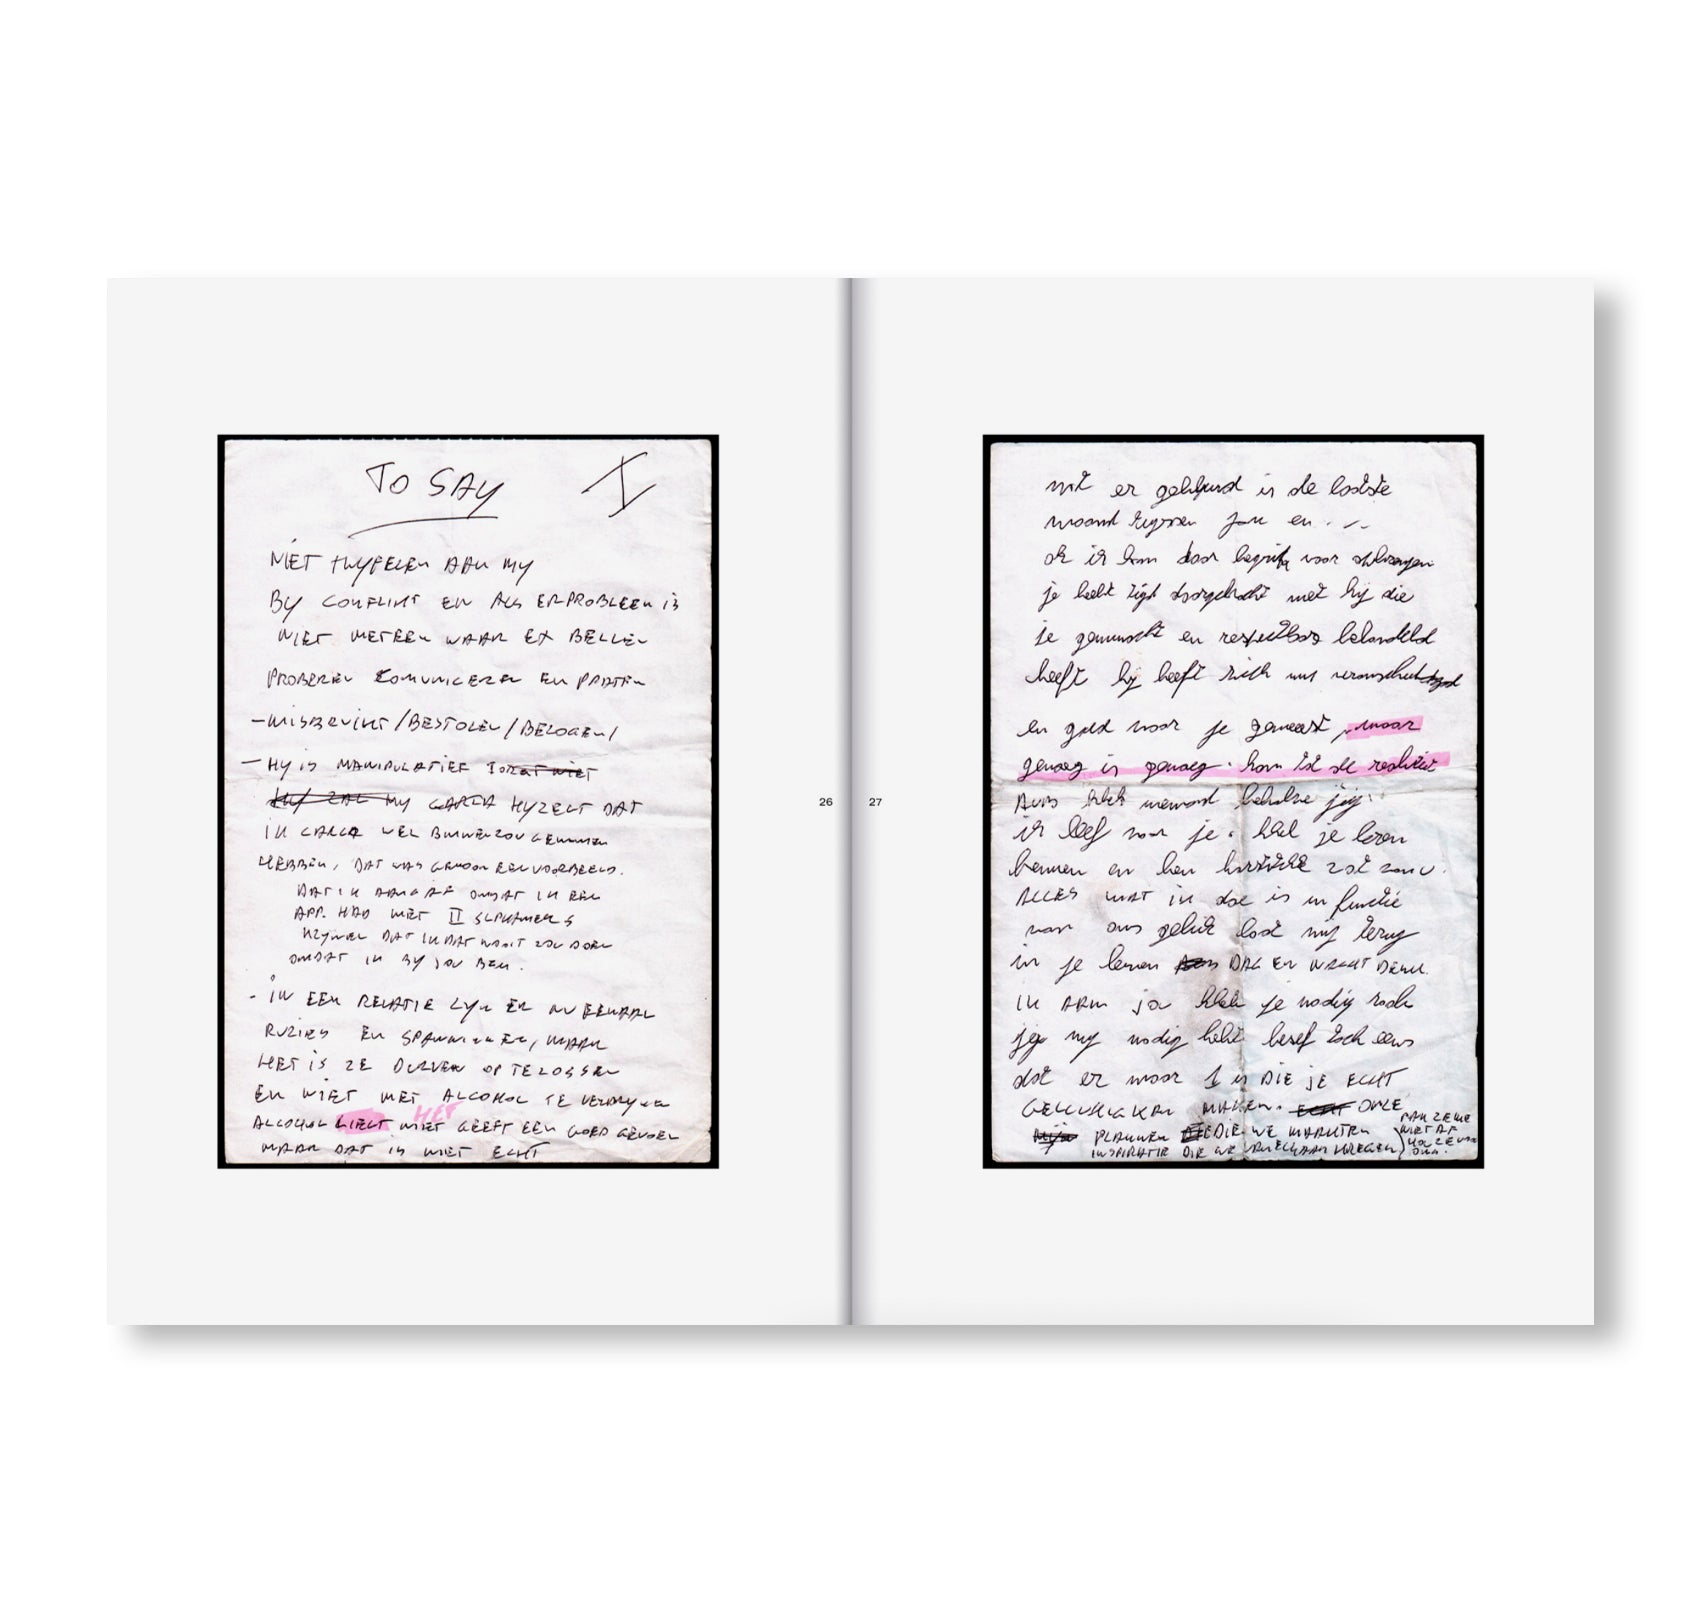 TO SAY I
NIET TWYFELEN AAN MY
BY CONFLIKT EN ALS ER PROBLEEM IS
NIET METEEN NAAR EX BELLEN
PROBEREN COMUNICEREN EN PRATEN
- MISBRUIKT / BESTOLEN / BELOGEN /
- HY IS MANIPULATIEF
MY CARLA HY ZEGT DAT
IK CARLA WEL BINNEN ZOU GENOMEN
HEBBEN, DAT WAS GEWOON EEN VOORBEELD.
DAT IK AANGAF OMDAT IK EEN
APP. HAD MET II SLPKAMERS
HY DAT IK DAT NOOIT ZOU DOEN
OMDAT IK BY JOU BEN.
- IN EEN RELATIE ZYN ER NU EENMAAL
RUZIES EN SPANNINGEN, MAAR
HET IS ZE DURVEN OP TE LOSSEN
EN NIET MET ALCOHOL TE VERDRYVEN
HET
ALCOHOL LIEGT NIET GEEFT EEN GOED GEVOEL
MAAR DAT IS NIET ECHT
26
27
wat er gebeurd is de laatste
maand tussen jou en
ok ik kan daar begrip voor
je hebt tijd doorgebracht met hij die
je en respectbaar behandeld
heeft hij heeft zich
en goed voor je geweest, maar
genoeg is genoeg. kom tot de realiteit
heb niemand behalve jij.
ik leef voor je. heb je leren
kennen en ben zot van u.
ALLES WAT ik doe is in functie
van ons geluk laat mij terug
in je leven DAG EN NACHT DENK
IK AAN jou heb je nodig zoals
jij mij nodig hebt besef toch eens
dat er maar 1 is DIE je ECHT
GELUKKIG KAN MAKEN. ONZE
PLANNEN DIE WE MAAKTEN
INSPIRATIE DIE WE VAN ELKAAR KREGEN
PAK ZE ME
NIET AF